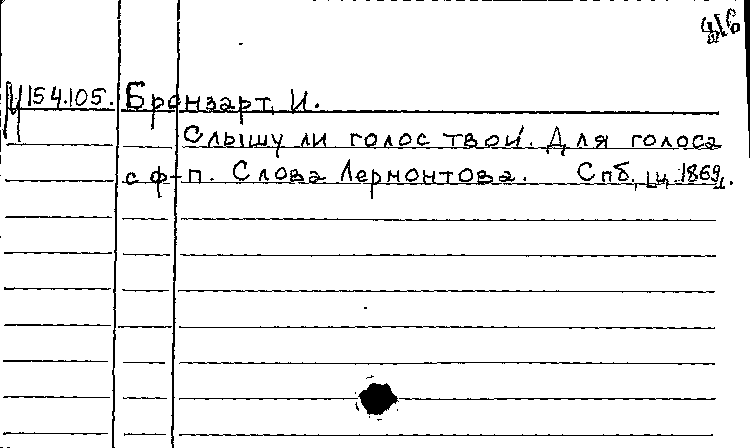 154.105. Бронзарт, И.
Слышу ли голос твой. Для голоса
с ф-п. Слова Лермонтова. Спб, ц. 1869.